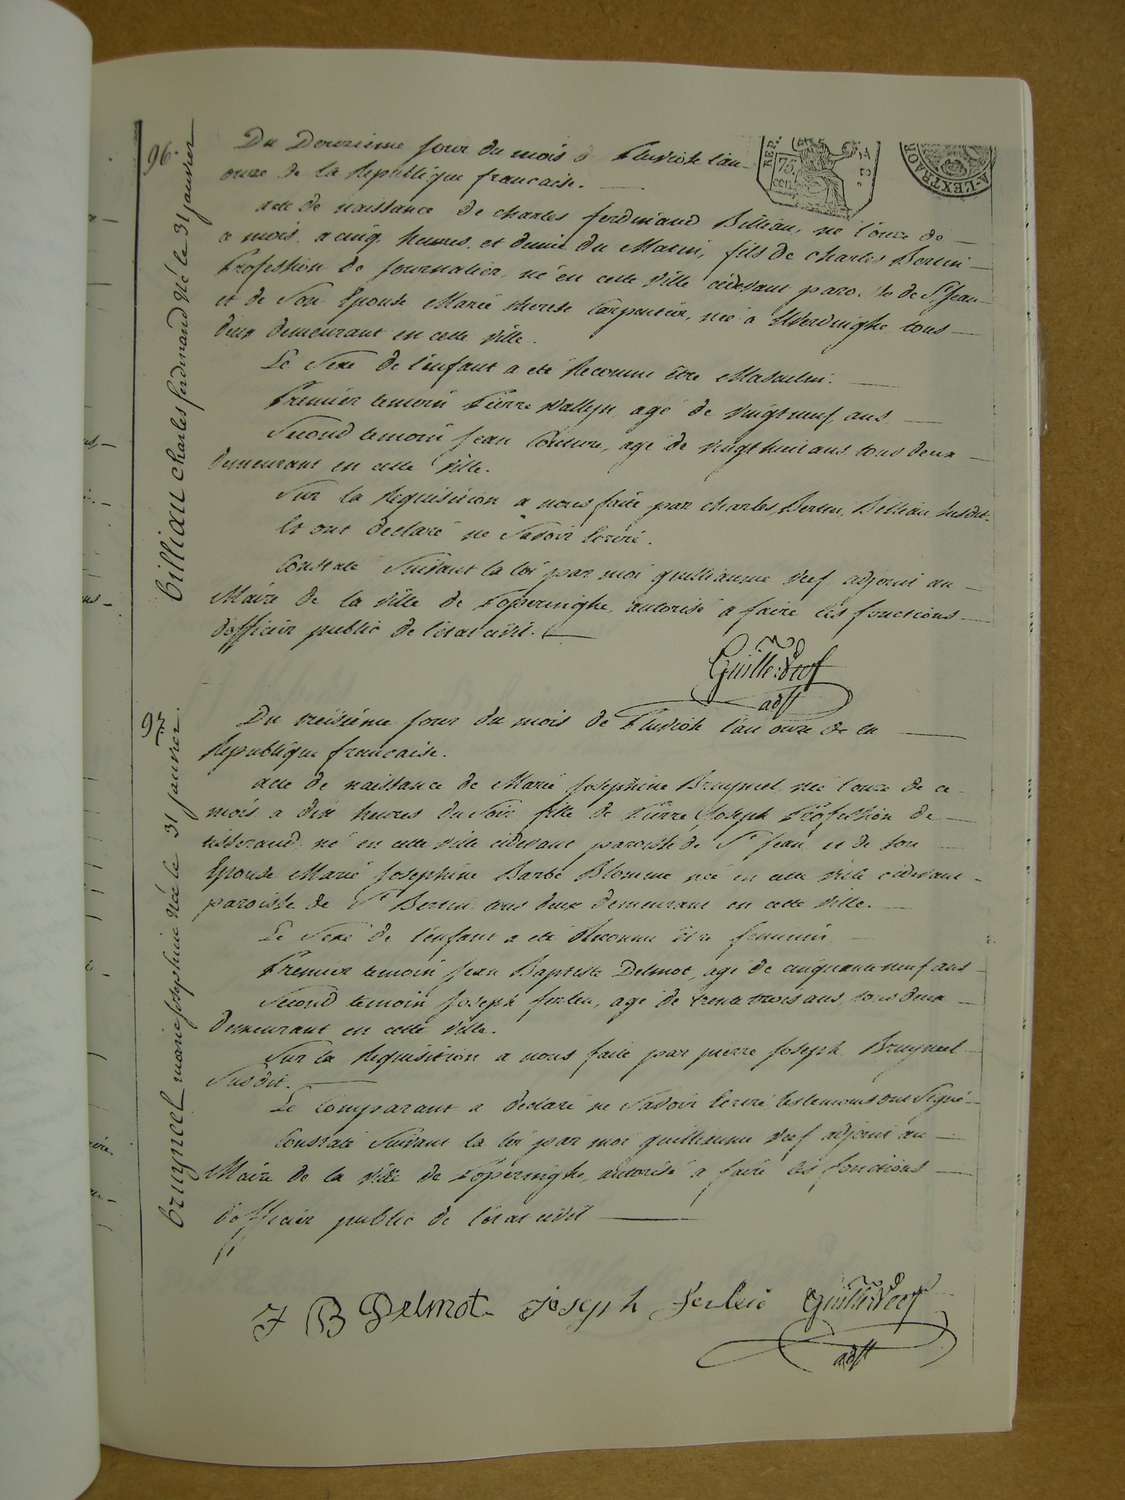 96.
billiau charles ferdinand né le 31 janvier
Du Douzieme jour du mois d Pluviose l'an
onze de la Republique francaise.
REP. 75 cen. A-L'EXTRAOR
acte de naissance de charles ferdinand Billiau, né l'onze de
ce mois, a cinq heures et demie du Matin, fils de charles Bertin
Profession de Journalier, né en cette ville cidevant paro. de St Jean
et de Son Epouse Marie therese Carpentier, née a tous
deux demeurant en cette ville.
Le Sexe de l'enfant a été Reconnu être Masculin.
Premier temoin Pierre Wallyn, agé de vingtneuf ans
Second temoin Jean agé de vingthuit ans tous deux
demeurant en cette ville.
Sur la Requisition a nous faite par charles Bertin Billiau susdit.
Et ont declaré ne Savoir Ecrire.
Constaté Suivant la loi par moi guilliaume Veef adjoint au
Maire de la Ville de Poperinghe, autorisé a faire les fonctions
d'officier public de l'etat civil.
Guille: Veef
adjt
97.
bruyneel marie josephine née le 31 janvier.
Du treisième jour du mois de Pluviose l'an onze de la
Republique francaise.
acte de naissance de Marie Josephine Bruyneel née l'onze de ce
mois a dix heures du Soir fille de Pierre Joseph Profession de
tisserand, né en cette ville cidevant paroisse de St Jean et de son
Epouse Marie Josephine Barbe Blomme née en cette Ville cidevant
paroisse de St Bertin tous deux demeurant en cette Ville.
Le Sexe de l'enfant a été Reconnu être feminin
Premier temoin Jean Baptiste Delmot, agé de cinquanteneuf ans
Second temoin Joseph agé de trente trois ans, tous deux
demeurant en cette ville.
Sur la Requisition a nous faite par pierre Joseph Bruyneel
Susdit.
Le Comparant a declaré ne Savoir Ecrire, les temoins ont Signé
Constaté Suivant la loi par moi guilliaume Veef adjoint au
Maire de la Ville de Poperinghe, autorisé a faire les fonctions
d'officier public de l'etat civil
J B Delmot Joseph Guille: Veef
adjt